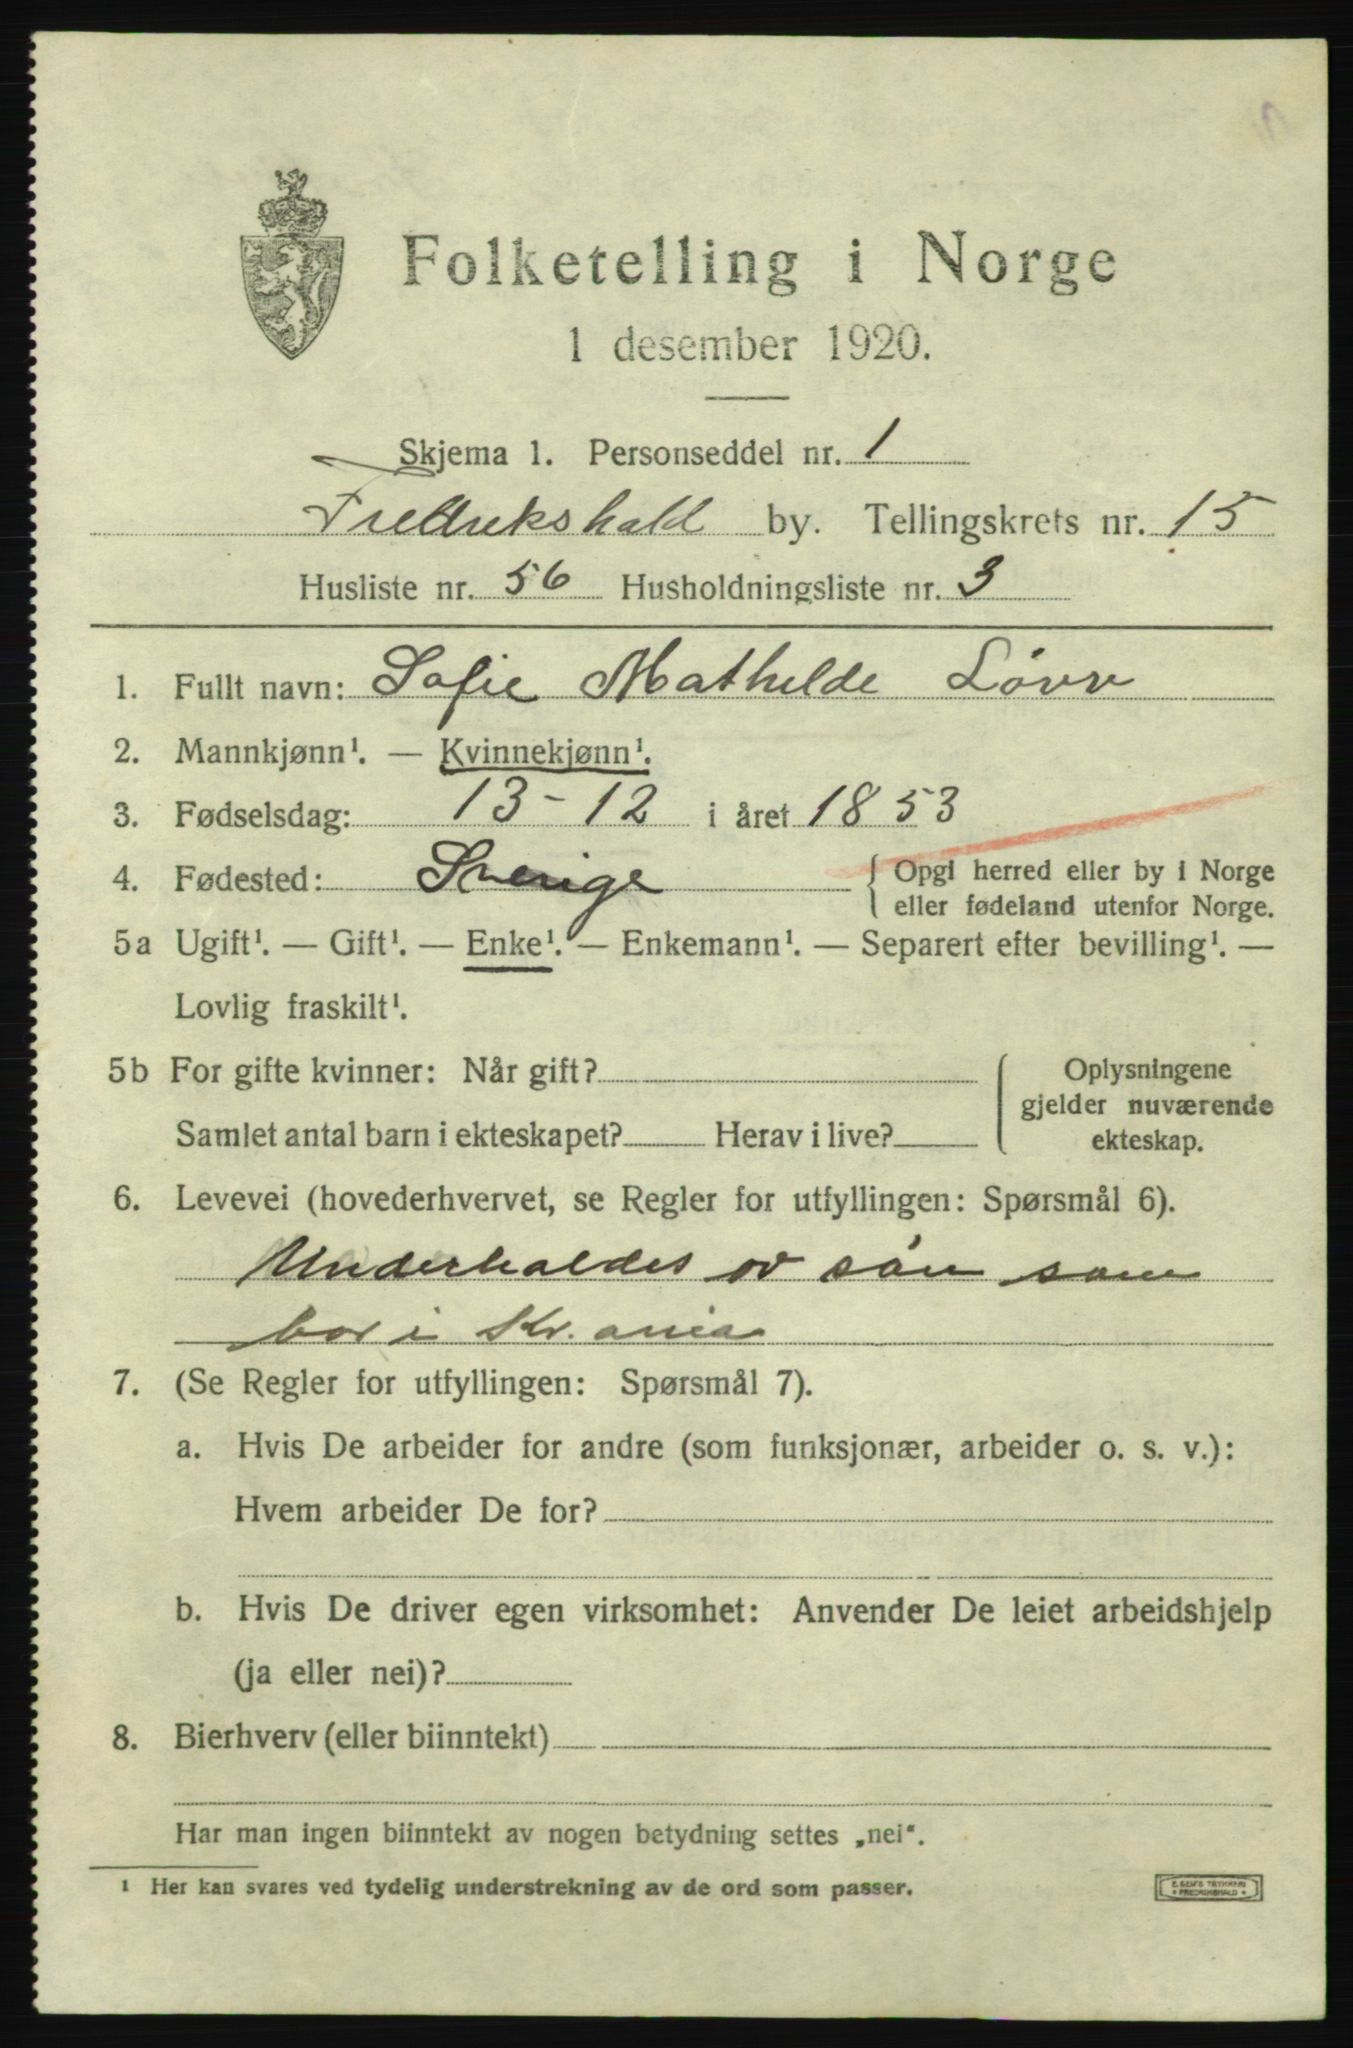 Folketelling i Norge
1 desember 1920.
Skjema 1. Personseddel nr. 1
Fredrikshald by. Tellingskrets nr. 15
Husliste nr. 56 Husholdningsliste nr. 3
1. Fullt navn: Sofie Mathilde
2. Mannkjønn¹. — Kvinnekjønn¹.
3. Fødselsdag: 13-12 i året 1853
4. Fødested: Sverige { Opgi herred eller by i Norge
eller fødeland utenfor Norge.
5a Ugift¹. — Gift¹. — Enke¹. — Enkemann¹. — Separert efter bevilling¹. —
Lovlig fraskilt¹.
5b For gifte kvinner: Når gift? { Oplysningene
gjelder nuværende
Samlet antal barn i ekteskapet? Herav i live? ekteskap.
6. Levevei (hovederhvervet, se Regler for utfyllingen: Spørsmål 6).
Underholdes av søn som
bor i Kr.ania
7. (Se Regler for utfyllingen: Spørsmål 7).
a. Hvis De arbeider for andre (som funksjonær, arbeider o. s. v.):
Hvem arbeider De for?
b. Hvis De driver egen virksomhet: Anvender De leiet arbeidshjelp
(ja eller nei)?
8. Bierhverv (eller biinntekt)
Har man ingen biinntekt av nogen betydning settes „nei“.
¹ Her kan svares ved tydelig understrekning av de ord som passer.
E. SEM'S TRYKKERI
• FREDRIKSHALD •